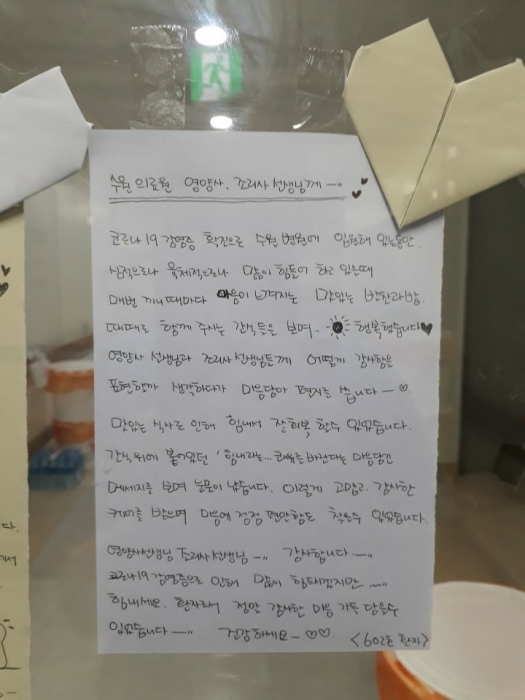 수원 의료원 영양사. 조리사 선생님께 ~
코로나19 감염증 확진으로 수원 병원에 입원해 있는동안.
심적으로나 육체적으로나 많이 힘들어 하고 있을때
매번 끼니때마다 마음이 느껴지는 맛있는 반찬과 밥.
때때로 함께 주시는 간식들을 보며. 행복했습니다♥
영양사 선생님과 조리사 선생님들께 어떻게 감사함을
표현할까 생각하다가 마음담아 편지를 씁니다 ~ ♡.
맛있는 식사로 인해 힘내서 잘 회복 할수 있었습니다.
간식 위에 붙어있던 '힘내라는... 쾌유를 바란다는 마음담긴
메세지를 보며 눈물이 났습니다. 이렇게 고맙고. 감사한
케어를 받으며 마음에 점점 편안함도 찾을수 있었습니다.
영양사선생님. 조리사 선생님 ~ 감사합니다 ~
코로나19 감염증으로 인해 많이 힘드시겠지만 ~
힘내세요. 환자로서 정말 감사한 마음 가득 담을수
있었습니다 ~ 건강하세요 ~ ♡♡
<602호 환자>